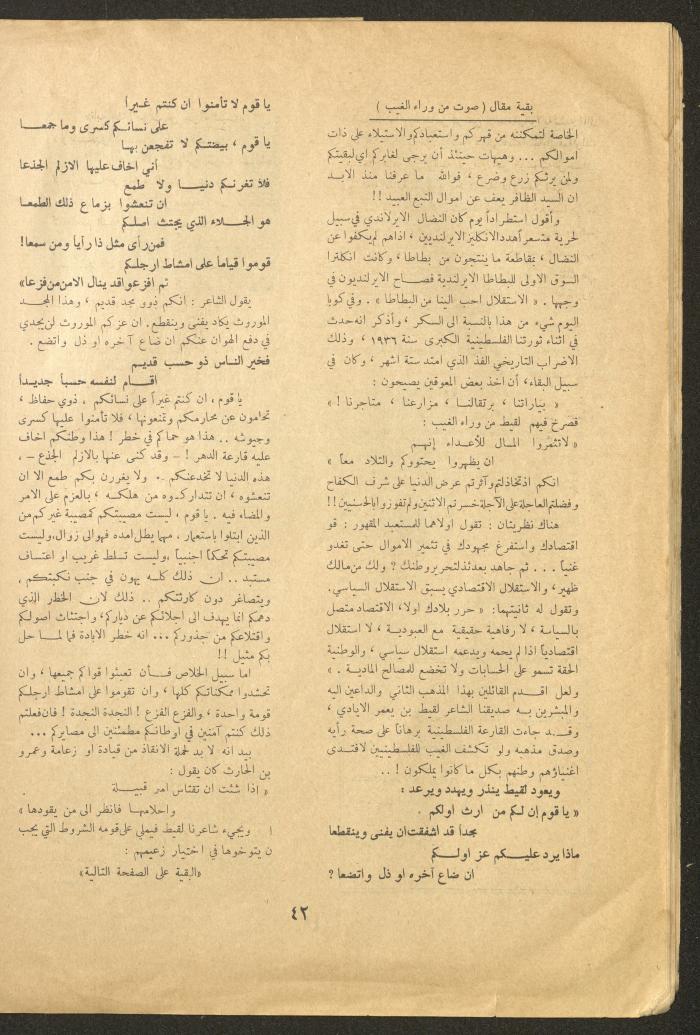 بقية مقال ( صوت من وراء الغيب )
الخاصة لتمكننه من قهركم واستعبادكم والاستيلاء على ذات
اموالكم ... وهيهات حينئذ أن يرجى لغابركم اي ليقيتكم
ولمن يرثكم زرع وضرع ، فوالله ما عرفنا منذ الابد
ان السيد الظافر يعف عن اموال التبع العبيد !!
وأقول استطراداً يوم كان النضال الايرلاندي في سبيل
لحرية متسعراً هدد الانكليز الايرلنديين ، اذا هم لم يكفوا عن
النضال ، بمقاطعة ما ينتجون من بطاطا ، وكانت انكلترا
السوق الاولى للبطاطا الايرلندية فصاح الايرلنديون في
وجهها . « الاستقلال احب الينا من البطاطا » . وفي كوبا
اليوم شيء من هذا بالنسبة الى السكر ، وأذكر انه حدث
في اثناء ثورتنا الفلسطينية الكبرى سنة ١٩٣٦ ، وذلك
الاضراب التاريخي الفذ الذي امتد ستة اشهر ، وكان في
سبيل البقاء، أن اخذ بعض المعوقين يصيحون :
« بياراتنا ، برتقالنا ، مزارعنا ، متاجرنا ! »
فصرخ فيهم لقيط من وراء الغيب :
« لا تثمروا المال للأعداء إنهم
ان يظهروا يحتووكم والتلاد معاً »
انكم اذ تخاذلتم وآثرتم عرض الدنيا على شرف الكفاح
وفضلتم العاجلة على الآجلة خسرتم الاثنين ولم تفوزوا بالحسنيين !!
هناك نظريتان : تقول اولاهما للمستعبد المقهور : قو
اقتصادك واستفرغ مجهودك في تثمير الاموال حتى تغدو
غنياً ... ثم جاهد بعدئذ لتحرر وطنك ? ولك من مالك
ظهير ، والاستقلال الاقتصادي يسبق الاستقلال السياسي.
وتقول له ثانيتهما : « حرر بلادك اولا، الاقتصاد متصل
بالسياسة ، لا رفاهية حقيقية مع العبودية ، لا استقلال
اقتصادياً اذا لم يحمه ويدعمه استقلال سياسي ، والوطنية
الحقة تسمو على الحسابات ولا تخضع للمصالح المادية . »
ولعل اقدم القائلين بهذا المذهب الثاني والداعين اليه
والمبشرين به صديقنا الشاعر لقيط بن يعمر الايادي ،
وقد جاءت القارعة الفلسطينية برهاناً على صحة رأيه
وصدق مذهبه ولو تكشف الغيب للفلسطينيين لافتدى
اغنياؤهم وطنهم بكل ما كانوا يملكون ! ..
ويعود لقيط ينذر ويهدد ويرعد :
« يا قوم إن لكم من ارث اولكم .
مجداً قد اشفقت ان يفنى وينقطعا
ماذا يرد عليكم عز اولكم
ان ضاع آخره او ذل واتضعا ?
يا قوم لا تأمنوا ان كنتم غيراً
على نسائكم كسرى وما جمعا
يا قوم ، بيضتكم لا تفجعن بها
أني اخاف عليها الازلم الجذعا
فلا تغرنكم دنيا ولا طمع
ان تنعشوا بزماع ذلك الطمعا
هو الجلاء الذي يجتث اصلكم
فمن رأى مثل ذا رأياً ومن سمعا!
قوموا قياماً على امشاط ارجلكم
ثم افزعوا قد ينال الامن من فزعا»
يقول الشاعر : انكم ذوو مجد قديم ، وهذا المجد
الموروث يكاد يفنى وينقطع. ان عزكم الموروث لن يجدي
في دفع الهوان عنكم ان ضاع آخره او ذل واتضع .
فخير الناس ذو حسب قديم
اقام لنفسه حسباً جديداً
يا قوم ، ان كنتم غيراً على نسائكم ، ذوي حفاظ ،
تحامون عن محارمكم وتمنعونها ، فلا تأمنوا عليها كسرى
وجيوشه .. هذا هو حماكم في خطر ! هذا وطنكم اخاف
عليه قارعة الدهر ! – وقد كنى عنها بالازلم الجذع – ،
هذه الدنيا لا تخدعنكم .. ولا يغررن بكم طمع الا ان
تنعشوه ، ان تتداركوه من هلكه ، بالعزم على الامر
والمضاء فيه . يا قوم ، ليست مصيبتكم كمصيبة غيركم من
الذين ابتلوا باستعمار ، مهما يطل امده فهو الى زوال، وليست
مصيبتكم تحكماً اجنبياً ، وليست تسلط غريب او اعتساف
مستبد .. ان ذلك كله يهون في جنب نكبتكم ،
ويتصاغر دون كارثتكم .. ذلك لان الخطر الذي
دهمكم انما يهدف الى اجلائكم عن دياركم ، واجتثاث اصولكم
واقتلاعكم من جذوركم ... انه خطر الابادة فما لما حل
بكم مثيل !!
اما سبيل الخلاص فان تعبئوا قواكم جميعها ، وان
تحشدوا ممكناتكم كلها ، وان تقوموا على امشاط ارجلكم
قومة واحدة ، والفزع الفزع ! النجدة النجدة ! فان فعلتم
ذلك كنتم آمنين في اوطانكم مطمئنين الى مصايركم ...
بيد انه لا بد لحملة الانقاذ من قيادة او زعامة وعمرو
بن الحارث كان يقول :
« إذا شئت ان تقتاس امر قبيلة
واحلامها فانظر الى من يقودها »
ويجيء شاعرنا لقيط فيملي على قومه الشروط التي يجب ا
ن يتوخوها في اختيار زعيمهم :
«البقية على الصفحة التالية»
٤٢